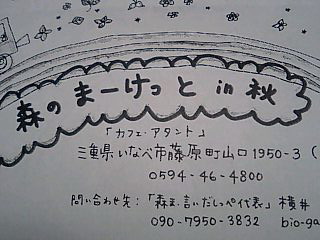 森のまーけっと in 秋
「カフェ・アダント」
三重県いなべ市藤原町山口1950-3（
0594-46-4800
問い合わせ先：「森ま言いだしっぺ代表」横井
090-7950-3832 bio-ga